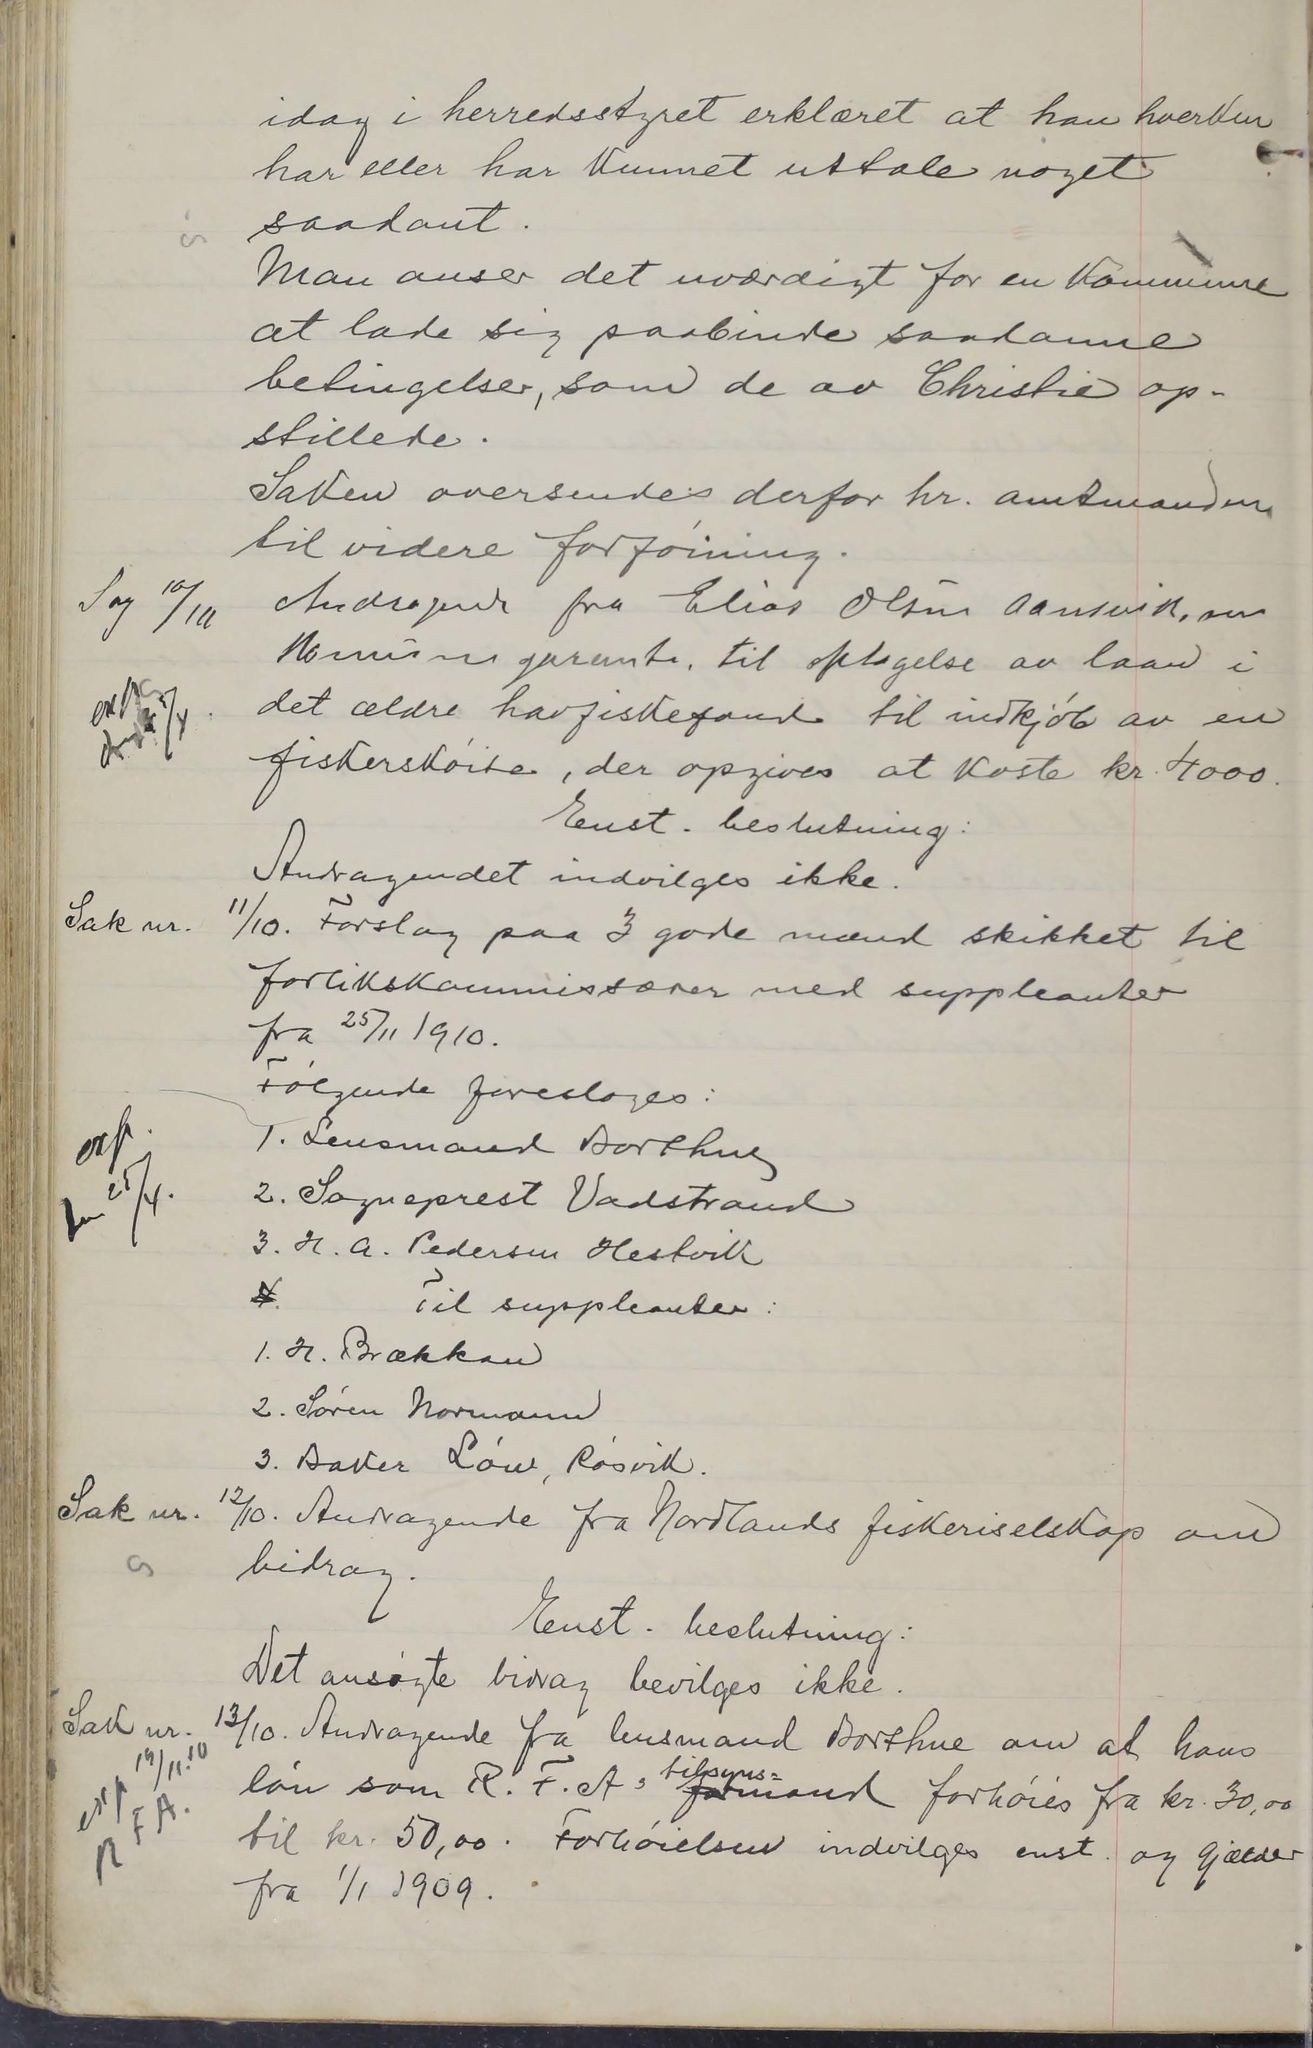 idag i herredsstyret erklæret at han hverken
har eller har kunnet uttale noget
saadant.
Man anser det uværdigt for en kommune
at lade sig paabinde saadanne
betingelser, som de av Christie op-
stillede.
Saken oversendes derfor hr. amtmanden
til videre forføining.
Sag 10/10 Andragende fra Elias Olsen Aansvik, om
garanti, til optagelse av laan i
det ældre havfiskefond til indkjøb av en
fiskerskøite, der opgives at koste kr. 4000.
Enst. beslutning:
Andragendet indvilges ikke.
Sak nr. 11/10. Forslag paa 3 gode mænd skikket til
forlikskommissærer med suppleanter
fra 25/11 1910.
Følgende foreslages:
1. Lensmand Borthue
exp.
25/4.
2. Sogneprest Vadstrand
3. H. A. Pedersen Hestvik
Til suppleanter:
1. H. Brækkan
2. Søren Normann
3. Baker Löw, Røsvik.
Sak nr. 12/10. Andragende fra Nordlands fiskeriselskap om
bidrag.
Enst. beslutning:
Det ansøgte bidrag bevilges ikke.
Sak nr. 13/10. Andragende fra lensmand Borthue om at hans
løn som R. F. A.s tilsyns=mand forhøies fra kr. 30,00
exp 19/11.10
R F A.
til kr. 50,00. Forhøielsen indvilges enst. og gjælder
fra 1/1 1909.